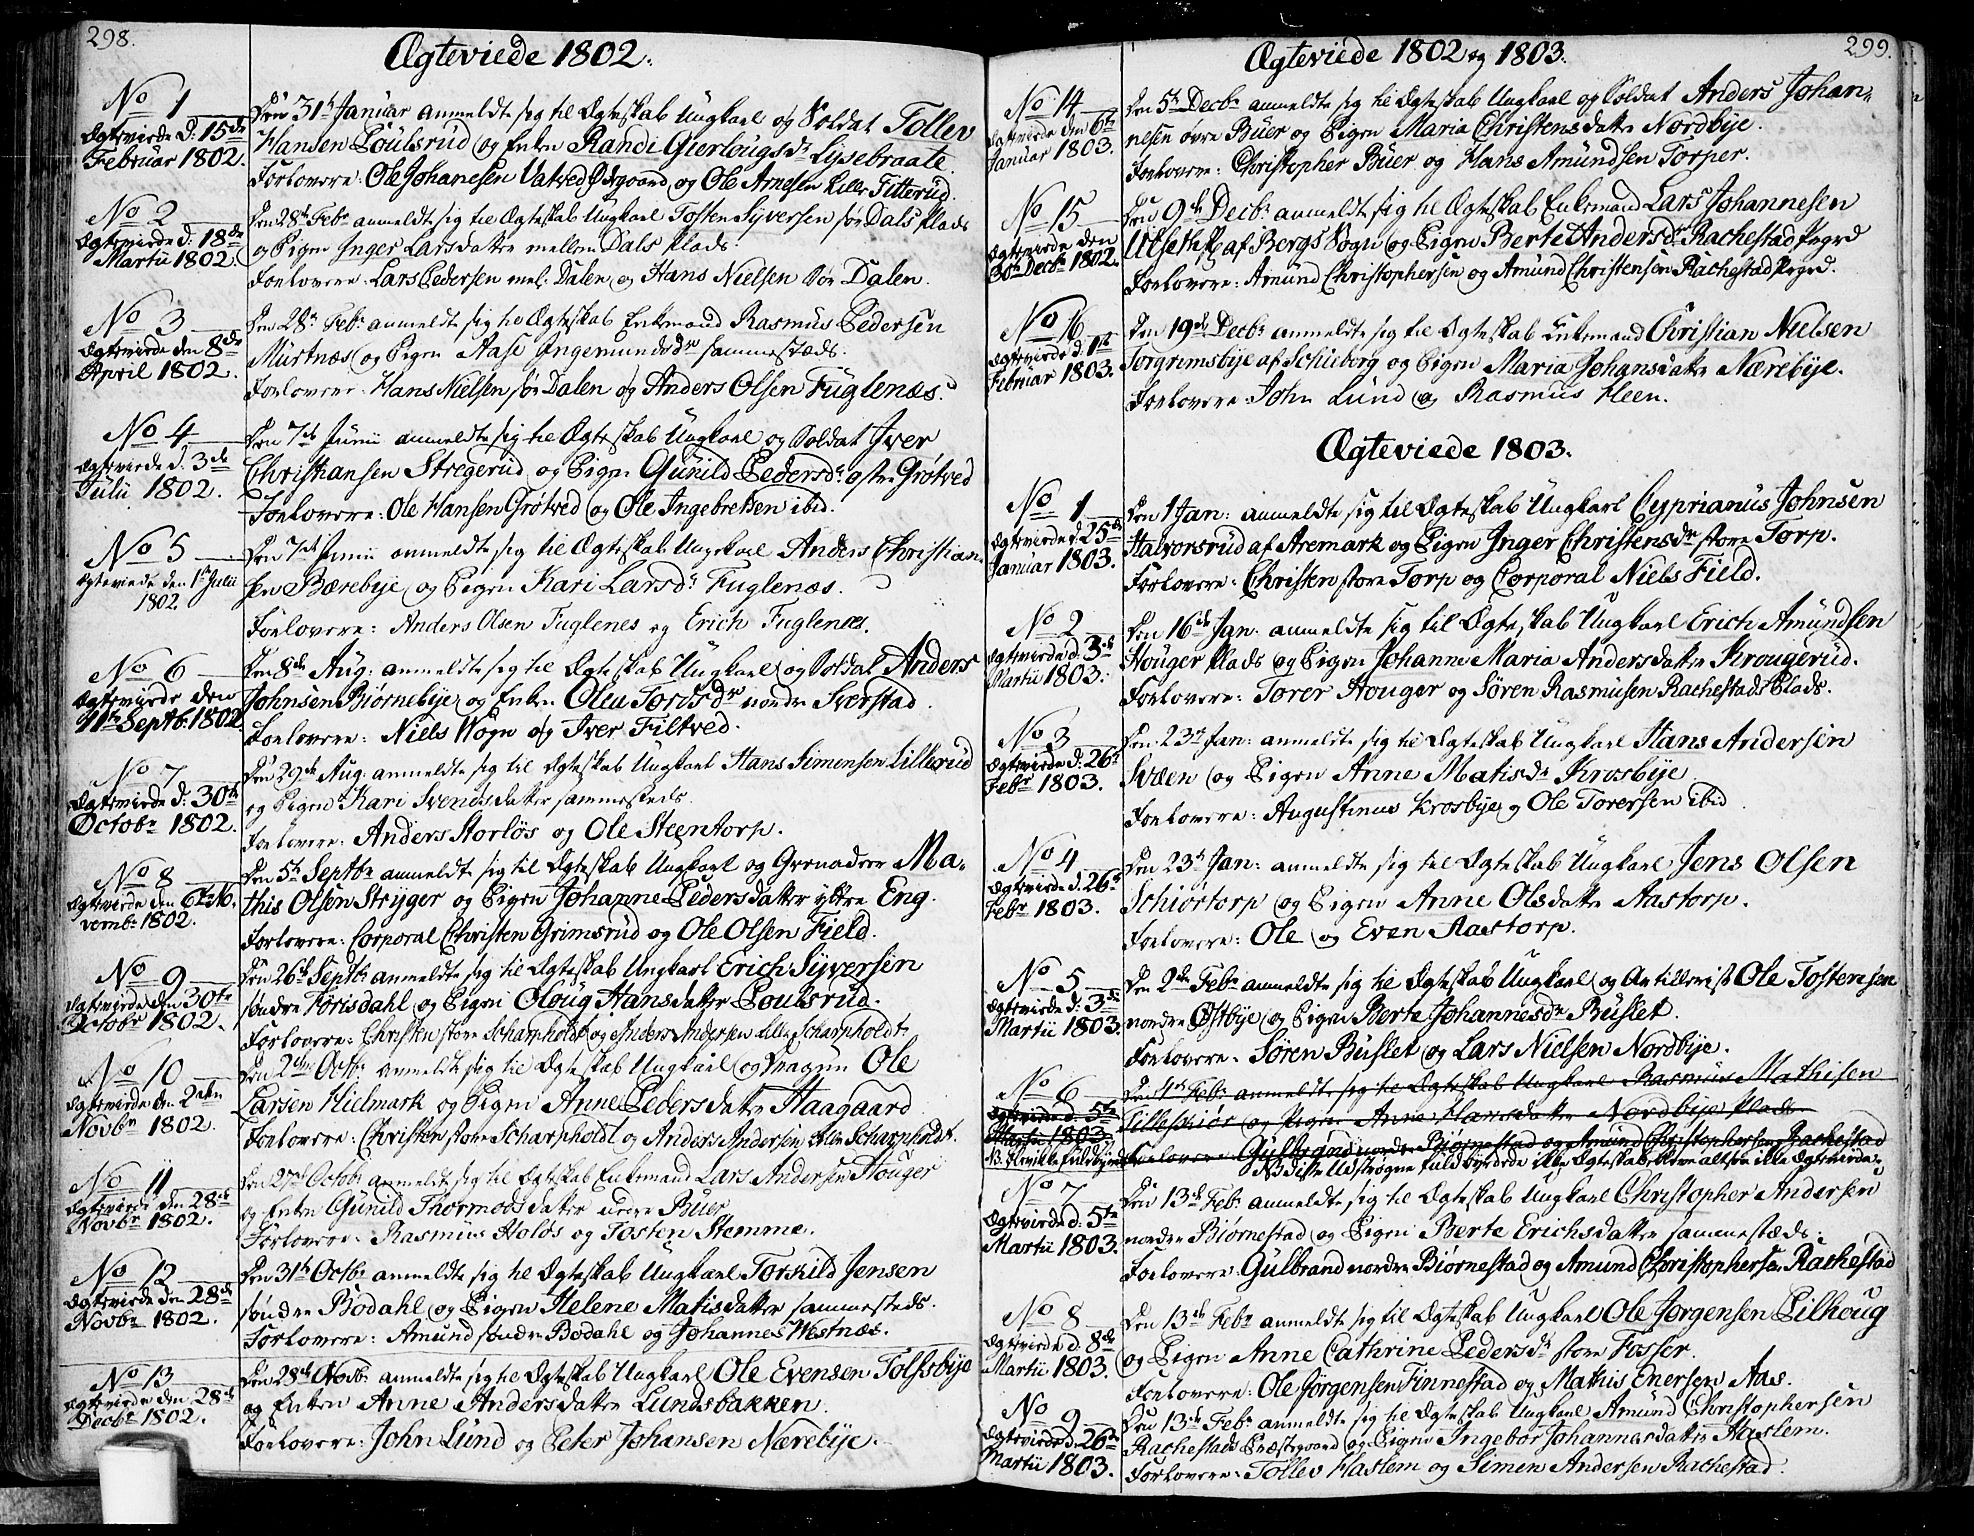 298.
Ægteviede 1802.
No 1
Ægteviede d: 15de
Februar 1802.
Den 31te Januar anmeldte sig til Ægteskab Ungkarl og Soldat Tollev
Hansen Poulsrud og Enken Randi Gierlougsdr Lysebraate
Forlovere: Ole Johanesen Vatved Østgaard og Ole Arnesen Lille Fitterud.
No 2
Ægteviede d: 18de
Martii 1802.
Den 28de Febr anmeldte sig til Ægteskab Ungkarl Tosten Syversen sør Dals Plads
og Pigen Inger Larsdatter mellem Dals Plads.
Forlovere: Lars Pedersen mel: Dalen og Hans Nielsen Sør Dalen.
No 3
Ægteviede den 8de
April 1802.
Den 28de Febr anmeldte sig til Ægteskab Enkemand Rasmus Pedersen
Murtnæs og Pigen Aase Ingemundsdr sammestæds.
Forlovere: Hans Nielsen sør Dalen og Anders Olsen Fuglenæs.
No 4
Ægteviede d. 3de
Julii 1802.
Den 7de Junii anmeldte sig til Ægteskab Ungkarl og Soldat Iver
Christiansen Stregerud og Pigen Gunild Pedersdr østre Grøtved
Forlovere: Ole Hansen Grøtved og Ole Ingebretsen ibid.
No 5
Ægteviede den 1te Julii
1802.
Den 7de Junii anmeldte sig til Ægteskab Ungkarl Anders Christian-
sen Bærebye og Pigen Kari Larsdr Fuglenæs.
Forlovere: Anders Olsen Fuglenes og Erich Fuglenæs.
No 6
Ægteviede den
11te Septb. 1802
Den 8de Aug: anmeldte sig til Ægteskab Ungkarl og Soldat Anders
Johnsen Biørnebye og Enken Olea Torsdr nordre Sverstad.
Forlovere: Niels Wogn og Iver Filtved.
No 7
Ægteviede d: 30te
Octobr 1802.
Den 29de Aug: anmeldte sig til Ægteskab Ungkarl Hans Simensen Lillerud
og Pigen Kari Svendsdatter sammesteds.
Forlovere: Anders Storløs og Ole Steentorp.
No 8
Ægteviede den 6te No-
vembr 1802.
Den 5te Septbr anmeldte sig til Ægteskab Ungkarl og Grenadeer Ma-
this Olsen Stryger og Pigen Johanne Pedersdatter yttre Eng.
Forlovere: Corporal Christen Grimsrud og Ole Olsen Field.
No 9
Ægteviede den 30te
Octobr 1802.
Den 26de Septbr anmeldte sig til Ægteskab Ungkarl Erich Syversen
søndre Torisdahl og Pigen Oloug Hansdatter Poulsrud.
Forlovere: Christen store Scharnholdt og Anders Andersen Lille Scharpholdt
No 10
Ægteviede den 2den
Novbr 1802.
Den 2den Octbr anmeldte sig til Ægteskab Ungkarl og Dragun Ole
Larsen Hielmark og Pigen Anne Pedersdatter Haagaard
Forlovere: Christen store Scharpholdt og Anders Andersen Lille Scharpholdt.
No 11
Ægteviede den 28de
Novbr 1802.
Den 27de Octobr anmeldte sig til Ægteskab Enkemand Lars Andersen Houger
og Enken Gunild Thormodsdatter Buer
Forlovere: Rasmus Holøs og Tosten Stemme.
No 12
Ægteviede den 28de
Novbr 1802.
Den 31te Octbr anmeldte sig til Ægteskab Ungkarl Torkild Jensen
søndre Bødahl og Pigen Helene Matisdatter sammesteds.
Forlovere: Amund søndre Bodahl og Johannes Westnæs.
No 13
Ægteviede den 28de
Decbr 1802.
Den 28de Novbr anmeldte sig til Ægteskab Ungkarl Ole Evensen Tolfsbye
og Enken Anne Andersdatter Lundsbakken.
Forlovere: John Lund og Peter Johansen Nærebye.
299.
Ægteviede 1802 og 1803.
No 14
Ægteviede den 6te
Januar 1803.
Den 5te Decbr anmeldte sig til Ægteskab Ungkarl og Soldat Anders Johan-
nesen øvre Buer og Pigen Maria Christensdatter Nordbye.
Forlovere: Christopher Buer og Hans Amundsen Torper.
No 15
Ægteviede den
30te Decbr 1802.
Den 9de Decbr anmeldte sig til Ægteskab Enkemand Lars Johannesen
Ulseth af Bergs Sogn og Pigen Berte Andersdr Rachestad Pregrd
Forlovere: Amund Christophersen og Amund Christensen Rachestad Pregrd.
No 16
Ægteviede d: 1te
Februar 1803.
Den 19de Decbr anmeldte sig til Ægteskab Enkemand Christian Nielsen
Torgrimsbye af Schiberg og Pigen Maria Johansdatter Nærebye.
Forlovere: John Lund og Rasmus Heen.
Ægteviede 1803.
No 1
Ægteviede d 25de
Januar 1803.
Den 1 Jan: anmeldte sig til Ægteskab Ungkarl Cyprianus Johnsen
Halvorsrud af Aremark og Pigen Inger Christensdr store Torp.
Forlovere: Christen store Torp og Corporal Niels Field.
No 2
Ægteviede d. 3de
Martii 1803.
Den 16de Jan: anmeldte sig til Ægteskab Ungkarl Erich Amundsen
Houger Plads og Pigen Johanne Maria Andersdatter Krougerud.
Forlovere: Torer Houger og Søren Rasmusen Rachestads Plads.
No 3
Ægteviede d: 26de
Febr 1803.
Den 23de Jan: anmeldte sig til Ægteskab Ungkarl Hans Andersen
Svæen og Pigen Anne Matisdr Krosbye
Forlovere: Augustinus Krosbye og Ole Torersen ibid
No 4
Ægteviede d: 26de
Febr 1803.
Den 23de Jan: anmeldte sig til Ægteskab Ungkarl Jens Olsen
Schiørtorp og Pigen Anne Olsdatter Aastorp.
Forlovere: Ole og Even Aastorp.
No 5
Ægteviede d: 3de
Martii 1803.
Den 2den Febr anmeldte sig til Ægteskab Ungkarl og Artillerist Ole Tostensen
nordre Østbye og Pigen Berte Johannesdr Buslet.
Forlovere: Søren Buslet og Lars Nielsen Nordbye.
No 6
Ægteviede d. 5te
Martii 1803.
NB. blev ikke fuldbyrdet
Den 4de Febr anmeldte sig til Ægteskab Ungkarl Rasmus Mathisen
Lilleskiør og Pigen Anne Hansdatter Nordbye Plads
Forlovere: Gulbrand nordre Biørnestad og Amund Christophersen Rachestad
NB disse Ustrogne fuldbyrdede ikke Ægteskabet bleve altsaa ikke Ægteviede.
No 7
Ægteviede d: 5te
Martii 1803.
Den 13de Febr anmeldte sig til Ægteskab Ungkarl Christopher Andersen
nordre Biørnestad og Pigen Berte Erichsdatter sammestæds.
Forlovere: Gulbrand nordre Biørnestad og Amund Christophersen Rachestad
No 8
Ægteviede d. 8de
Martii 1803.
Den 13de Febr anmeldte sig til Ægteskab Ungkarl Ole Jørgensen Pilhoug
og Pigen Anne Cathrine Pedersdr store Fosser.
Forlovere: Ole Jørgensen Finnestad og Mathis Enersen Aas.
No 9
Ægteviede d. 26de
Martii 1803.
Den 13de Febr anmeldte sig til Ægteskab Ungkarl Amund Christophersen
Rachestads Præstegaard og Pigen Ingebor Johannesdatter Haslem.
Forlovere: Tollev Haslem og Simen Andersen Rachestad.